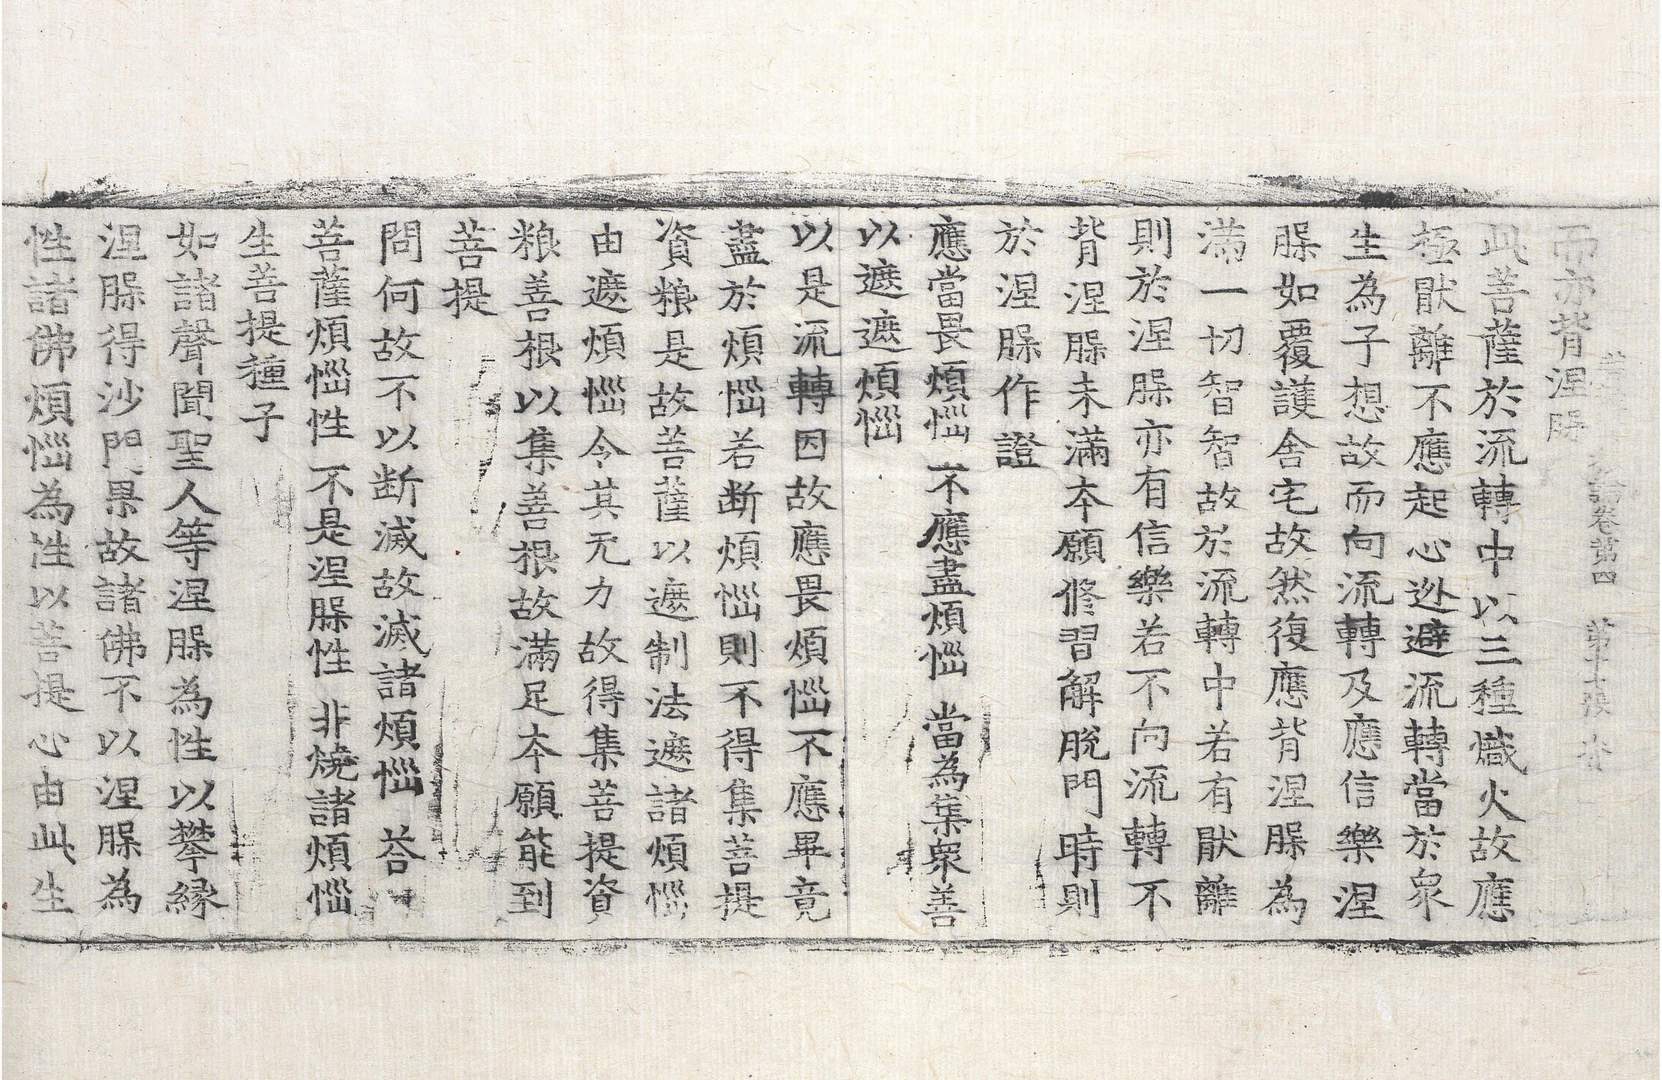 論卷第四 第十張
而亦背涅槃
此菩薩於流轉中以三種熾火故應
極猒離不應起心迯避流轉當於衆
生為子想故而向流轉及應信樂涅
槃如覆護舍宅故然復應背涅槃為
滿一切智智故於流轉中若有猒離
則於涅槃亦有信樂若不向流轉不
背涅槃未滿本願修習解脫門時則
於涅槃作證
應當畏煩惱 不應盡煩惱 當為集衆善
以遮遮煩惱
以是流轉因故應畏煩惱不應畢竟
盡於煩惱若断煩惱則不得集菩提
資粮是故菩薩以遮制法遮諸煩惱
由遮煩惱令其无力故得集菩提資
粮善根以集善根故滿足本願能到
菩提
問何故不以断滅故滅諸煩惱 荅
菩薩煩惱性 不是涅槃性 非燒諸煩惱
生菩提種子
如諸聲聞聖人等涅槃為性以攀縁
涅槃得沙門果故諸佛不以涅槃為
性諸佛煩惱為性以菩提心由此生